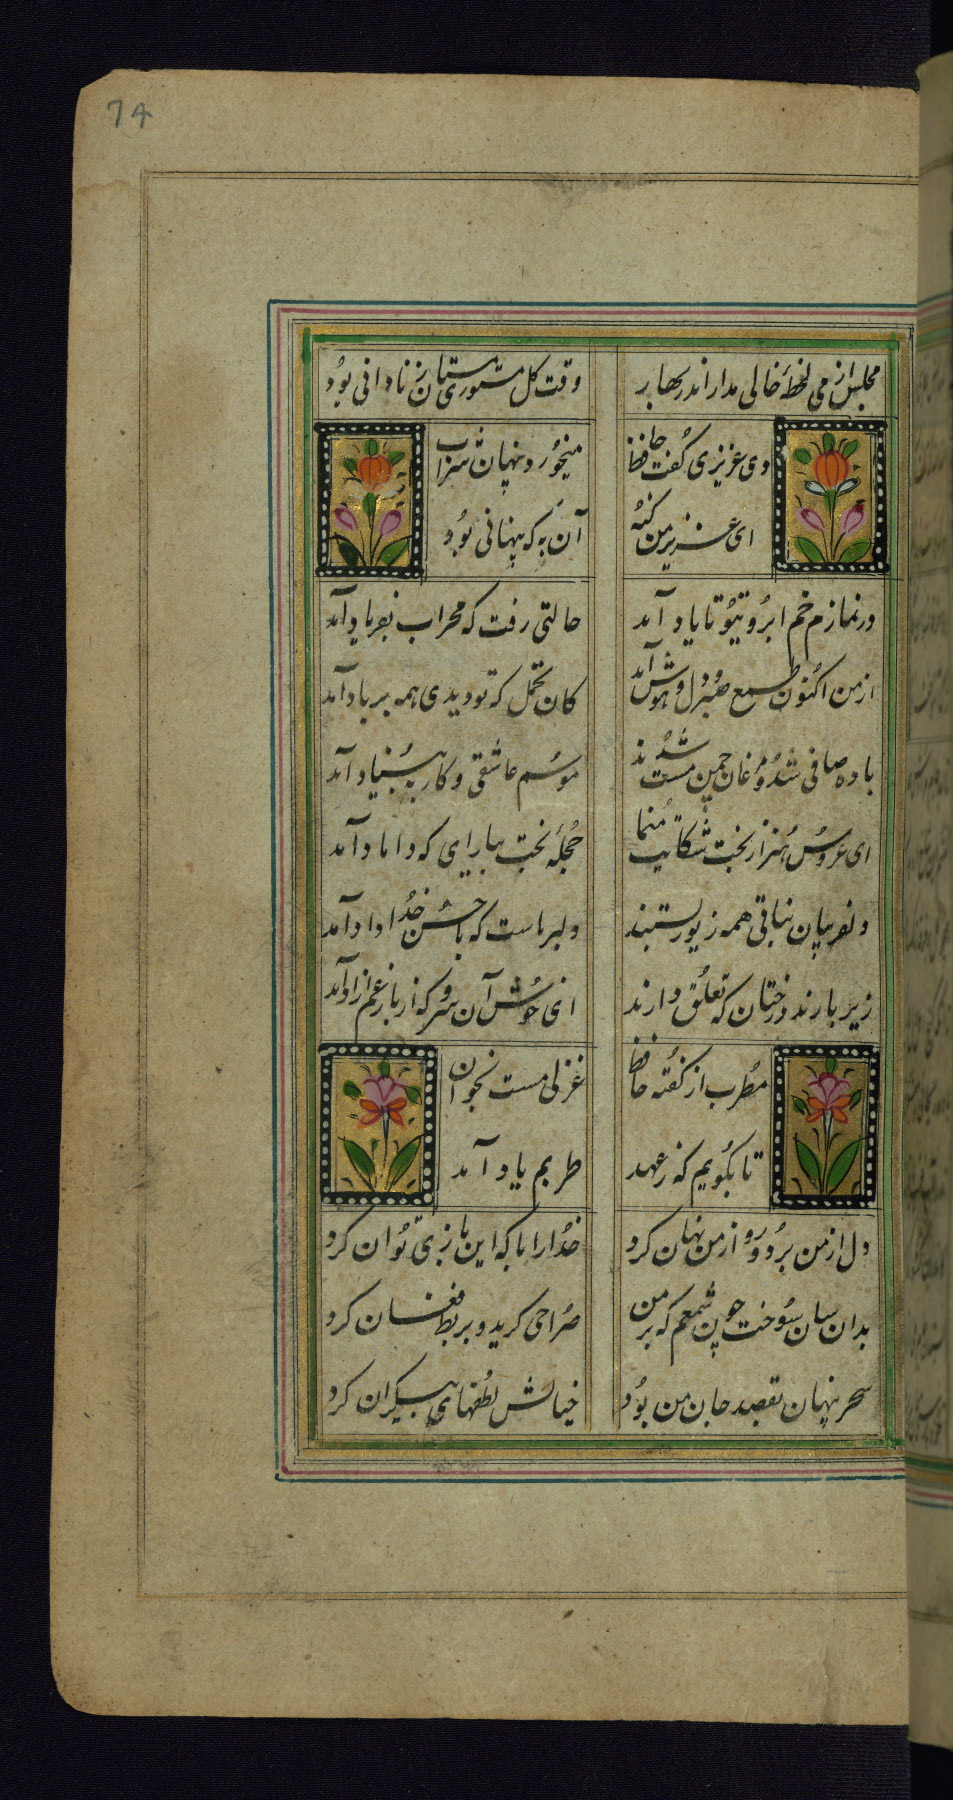 74
مجلس از می لحظهٔ خالی مدار اندر بهار
وقت گل مستوری مستان ز نادانی بود
دی عزیزی گفت حافظ
میخورد پنهان شراب
ای عزیز من گنه
آن به که پنهانی بود
در نمازم خم ابروی تو تا یاد آمد
حالتی رفت که محراب بفریاد آمد
از من اکنون طمع صبر و دل و هوش آمد
کان تحمل که تو دیدی همه بر باد آمد
باده صافی شد و مرغان چمن مست شدند
موسم عاشقی و کار به بنیاد آمد
ای عروس هنر از بخت شکایت منما
حجلهٔ بخت بیارای که داماد آمد
دلفریبان نباتی همه زیور بستند
دلبر ماست که با حسن خداداد آمد
زیر بارند درختان که تعلق دارند
ای خوش آن سرو که از بار غم آزاد آمد
مطرب از گفته حافظ
غزلی مست بخوان
تا بگویم که ز عهد
طربم یاد آمد
دل از من برد و رو از من نهان کرد
خدا را با که این بازی توان کرد
بدان سان سوخت چون شمعم که بر من
صراحی گریه و بربط فغان کرد
سحر پنهان بقصد جان من بود
خیالش لطفهای بیکران کرد